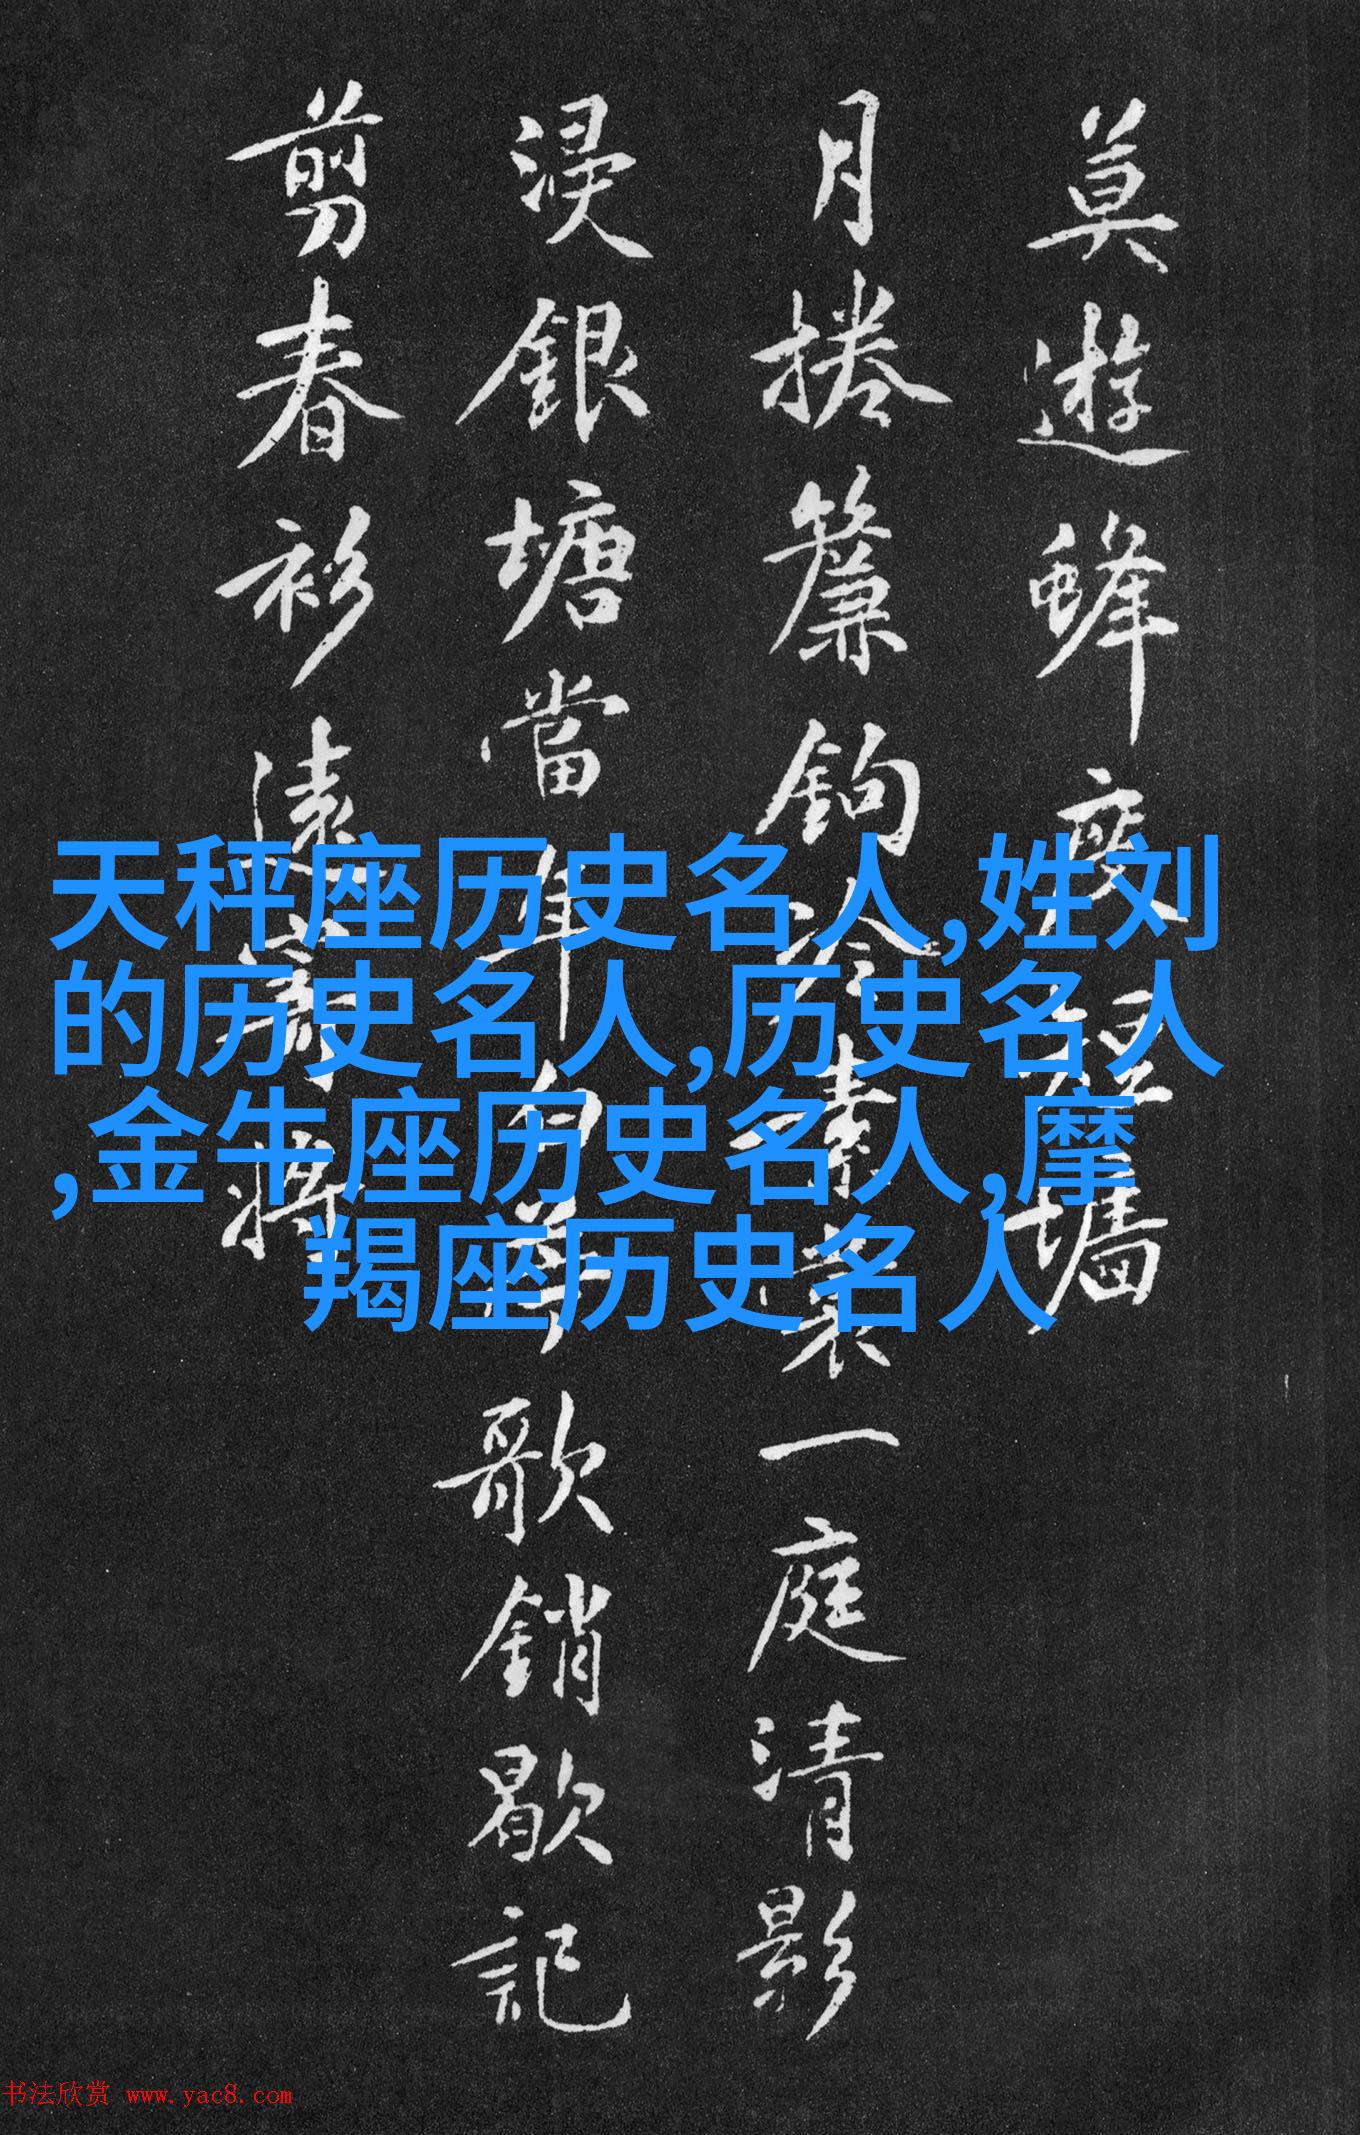 莫遊蜂度墙
月捲簾鉤冷素一庭清影
浸銀塘當年白苧歌銷歇記
剪春衫遠寄將
天秤座历史名人,姓刘
的历史名人,历史名人
,金牛座历史名人,摩
羯座历史名人
书法欣赏 www.yac8.com